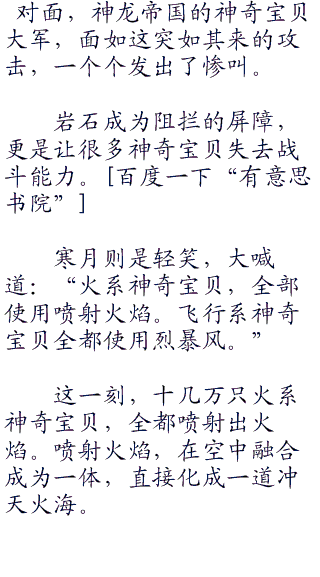 对面，神龙帝国的神奇宝贝
大军，面如这突如其来的攻
击，一个个发出了惨叫。
岩石成为阻拦的屏障，
更是让很多神奇宝贝失去战
斗能力。[百度一下“有意思
书院”]
寒月则是轻笑，大喊
道：“火系神奇宝贝，全部
使用喷射火焰。飞行系神奇
宝贝全都使用烈暴风。”
这一刻，十几万只火系
神奇宝贝，全都喷射出火
焰。喷射火焰，在空中融合
成为一体，直接化成一道冲
天火海。